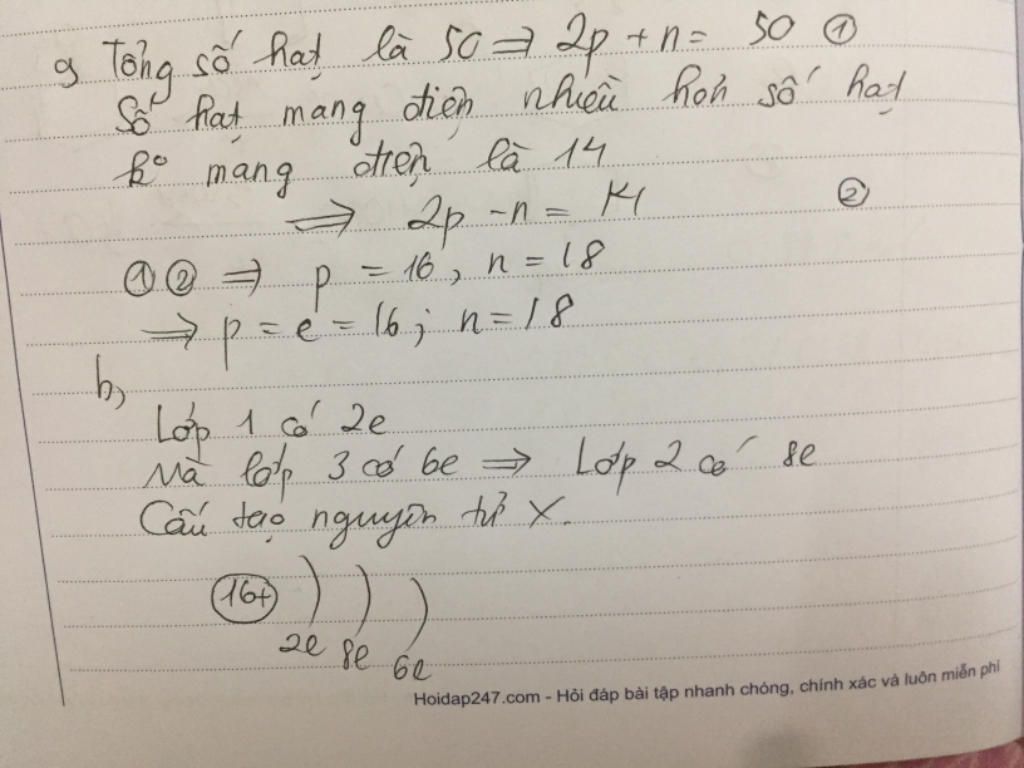 a, Tổng số hạt là 50 ⇒ 2p + n = 50 ①
Số hạt mang điện nhiều hơn số hạt
k° mang điện là 14
⇒ 2p - n = 14 ②
① ② ⇒ p = 16, n = 18
⇒ p = e = 16; n = 18
b,
Lớp 1 có 2e
Mà lớp 3 có 6e ⇒ Lớp 2 có 8e
Cấu tạo nguyên tử X.
16+
2e 8e 6e
Hoidap247.com - Hỏi đáp bài tập nhanh chóng, chính xác và luôn miễn phí